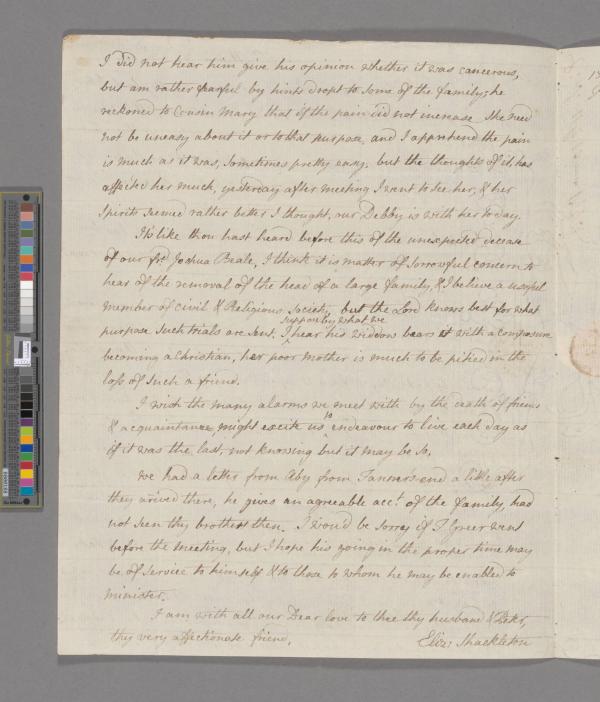 I did not hear him give his opinion whether it was cancerous,
but am rather fearful by hints dropt to some of the family; he
reckoned to Cousin Mary that if the pain did not increase she need
not be uneasy about it or to that purpose, and I apprehend the pain
is much as it was, Sometimes pretty easy, but the thoughts of it, has
affected her much, yesterday after meeting I went to see her, & her
Spirits Seemed rather better I thought, our Debby is with her to day.
It's like thou hast heard before this of the unexpected decease
of our frd Joshua Beale, I think it is matter of Sorrowful concern to
hear of the removal of the head of a large family, & I believe a useful
member of civil & Religious Society, but the Lord knows best for what
suppose by what we
purpose Such trials are Sent. I hear his widdow bears it with a composure
becoming a Christian, her poor mother is much to be pitied in the
loss of Such a friend.
I wish the many alarms we meet with by the death of friends
to
& acquaintance, might excite us endeavour to live each day as
if it was the last, not knowing but it may be So.
We had a letter from Aby from Tanner's end a little after
they arived there, he gives an agreeable acct. of the family, had
not seen thy brother then. I wou'd be Sorry if T Greer went
before the meeting, but I hope his going in the proper time may
be of Service to himself & to those to whom he may be enabled to
minister.
I am with all our Dear love to thee thy husband &
thy very affectionate friend,
Eliz; Shackleton